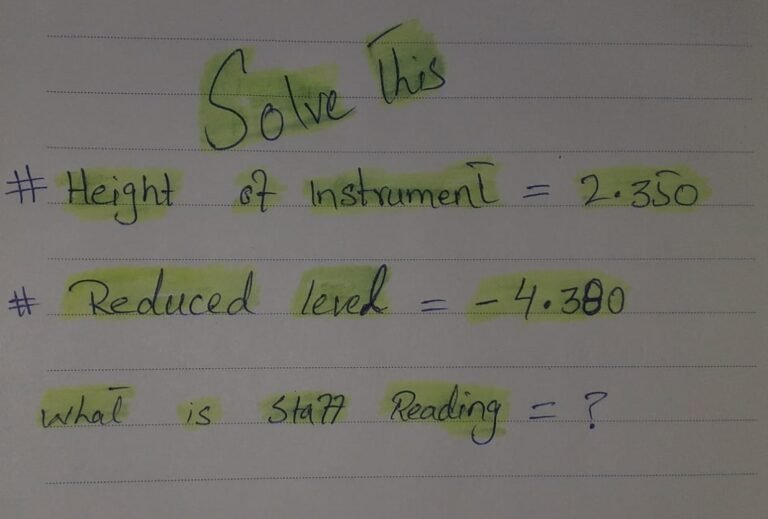 Solve This
# Height of Instrument = 2.350
# Reduced level = -4.380
What is Staff Reading = ?